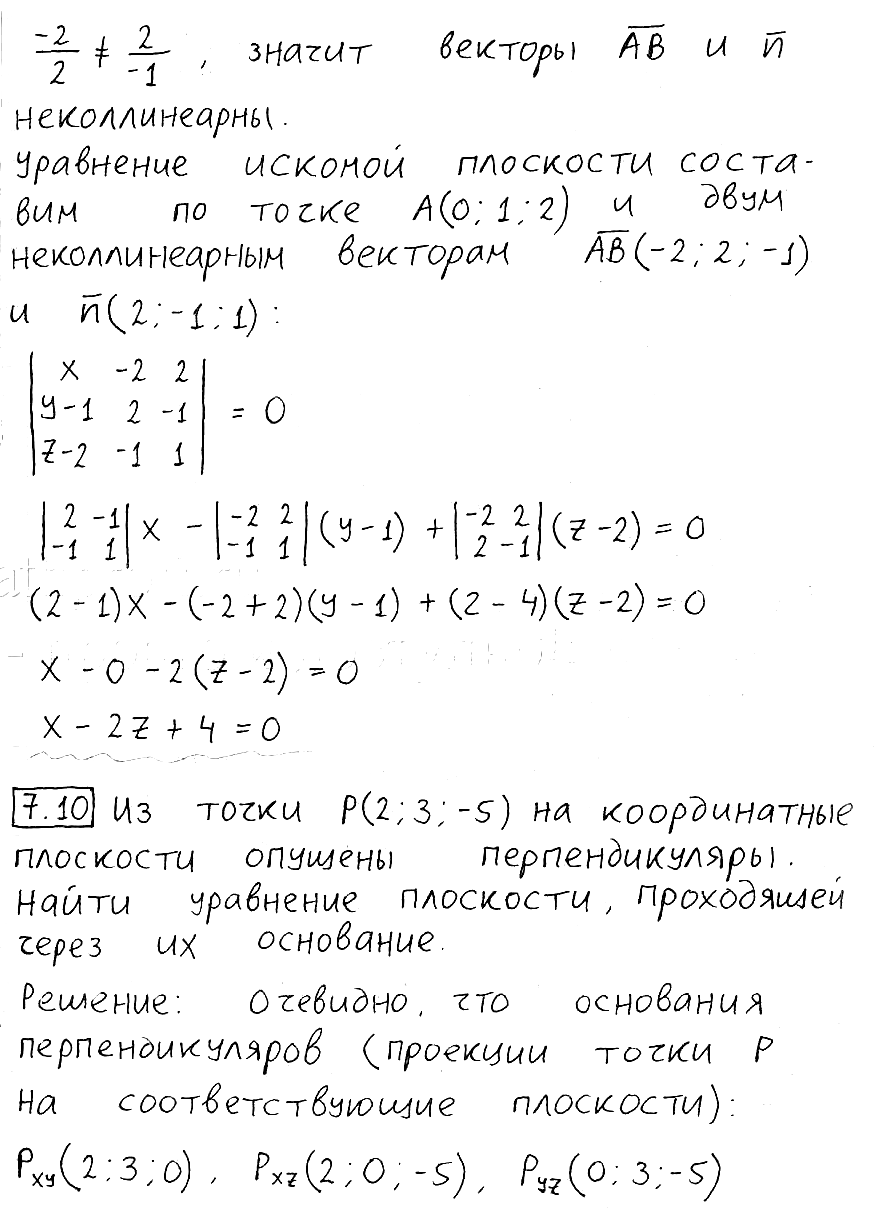 -2/2 ≠ 2/-1, значит векторы A̅B̅ и n̅
неколлинеарны.
Уравнение искомой плоскости соста-
вим по точке A(0; 1; 2) и двум
неколлинеарным векторам A̅B̅(-2; 2; -1)
и n̅(2; -1; 1):
| x -2 2 |
| y-1 2 -1 | = 0
| z-2 -1 1 |
| 2 -1 ; -1 1 | x - | -2 2 ; -1 1 | (y-1) + | -2 2 ; 2 -1 | (z-2) = 0
(2-1)x - (-2+2)(y-1) + (2-4)(z-2) = 0
x - 0 - 2(z-2) = 0
x - 2z + 4 = 0
7.10 Из точки P(2; 3; -5) на координатные
плоскости опущены перпендикуляры.
Найти уравнение плоскости, проходящей
через их основание.
Решение: Очевидно, что основания
перпендикуляров (проекции точки P
на соответствующие плоскости):
Pxy(2; 3; 0), Pxz(2; 0; -5), Pyz(0; 3; -5)